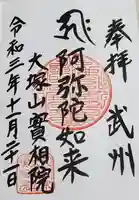 奉拝 武州
阿弥陀如来
大塚山實相院
令和三年十一月二十一日